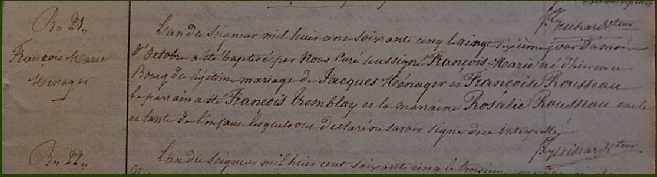 Bn 21.
François Marie
Ménager
L'an du Seigneur mil huit cent soixante cinq le cinquième jour du mois
d'Octobre a été baptisé par Nous Curé soussigné François Marie né hier en ce
Bourg de légitime mariage de Jacques Ménager et Françoise Rousseau
le parrain a été François Tremblay et la marraine Rosalie Rousseau oncle
et tante de l'enfant lesquels ont déclaré ne savoir signer de ce interpellés
Bn 22.
L'an du Seigneur mil huit cent soixante cinq le troisième jour